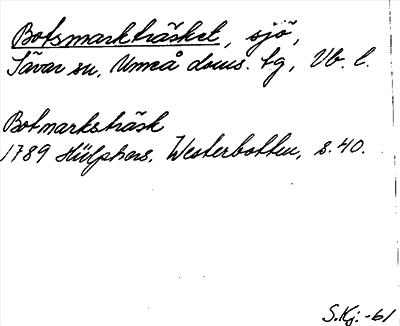 Botsmarkträsket, sjö,
Sävar sn, Umeå doms. tg, Vb. l.
Botmarksträsk
1789 Hülphers. Westerbotten, s. 40.
S.Kj. -61